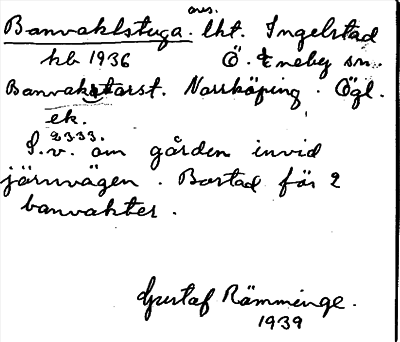 avs.
Banvaktstuga. lht. Ingelstad
hb 1936 Ö. Eneby sn.
Banvaktstorst. Norrköping. Ögl.
ek.
2333.
S.v. om gården invid
järnvägen. Bostad för 2
banvakter.
Gustaf Rämminge.
1939